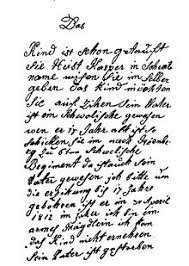 Das
Kind ist schon getauft
Sie Heist Kasper in Schreib
name misen Sie im Selber
geben Das Kind möchten
Sie auf Zihen Sein Vater
ist ein Schwolische gewesen
wen er 17 Jahr alt ist so
schicken Sie im nach
Zu 6ten Schwolische
Regiment da ist auch sein
Vater gewesen ich bitte um
die erzikung bis 17 Jahre
geboren ist er im 30 Aperil
1812 im Jahre ich bin ein
armes Mägdlein ich kan
das Kind nicht ernehren
Sein Vater ist gestorben